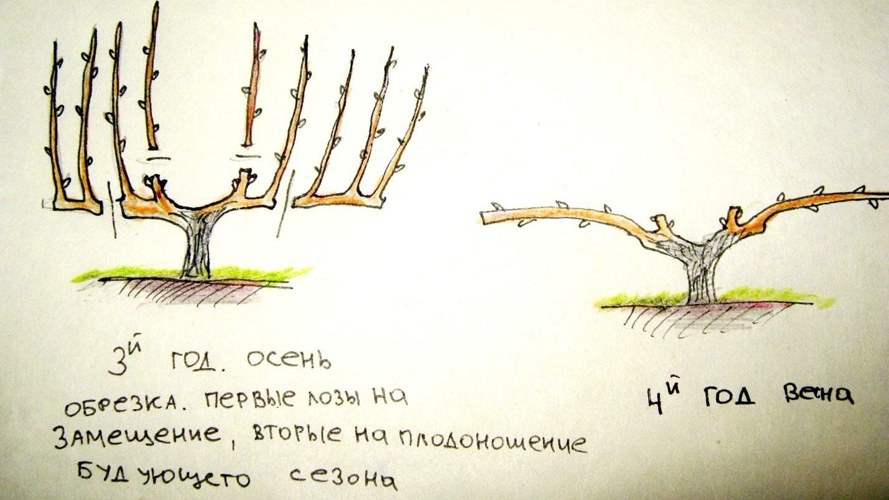 3й год. осень
обрезка. первые лозы на
замещение, вторые на плодоношение
будующего сезона
4й год весна